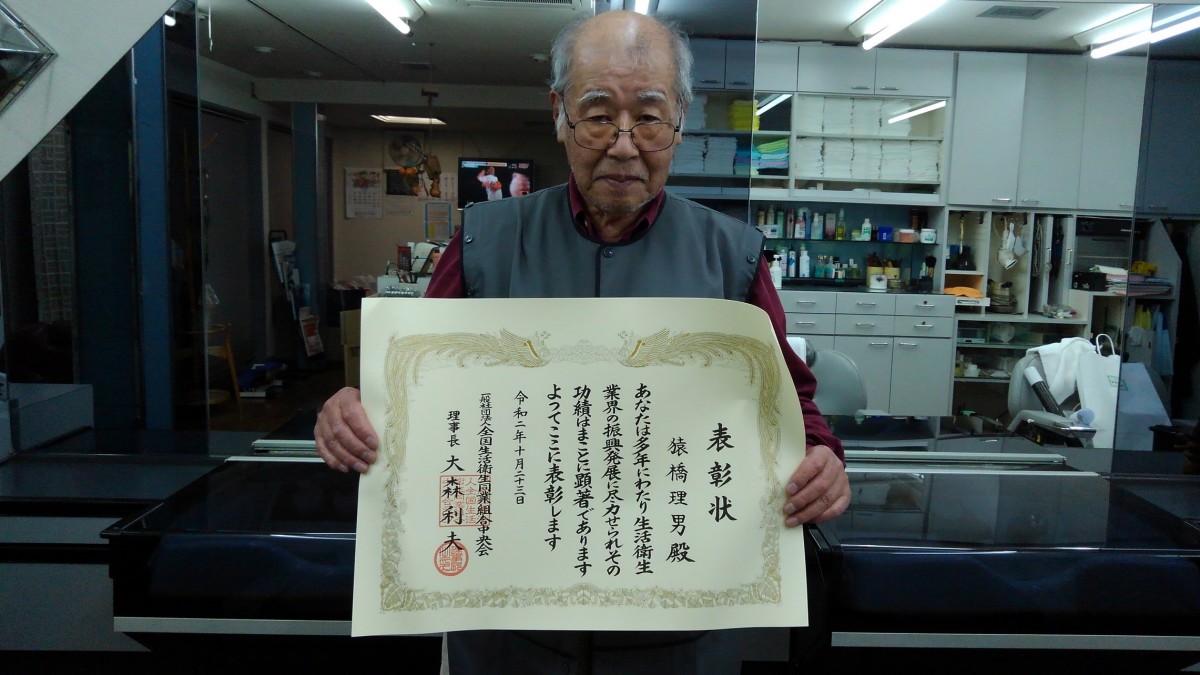 表彰状
猿橋理男殿
あなたは多年にわたり生活衛生
業界の振興発展に尽力せられその
功績はまことに顕著であります
よってここに表彰します
令和二年十月二十三日
一般社団法人全国生活衛生同業組合中央会
理事長 大森利夫